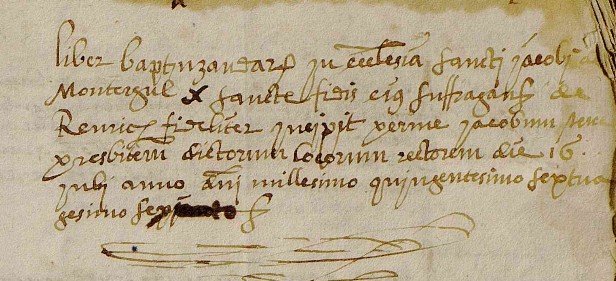 liber baptuzandar in ecclesia sancti jacobi
Montergul x sancte fidis eius suffragans de
fideliter incipit perme jacobum
presbiterum dictorum locorum rectorem die 16
anno dni millesimo quingentesimo septua
gesimo